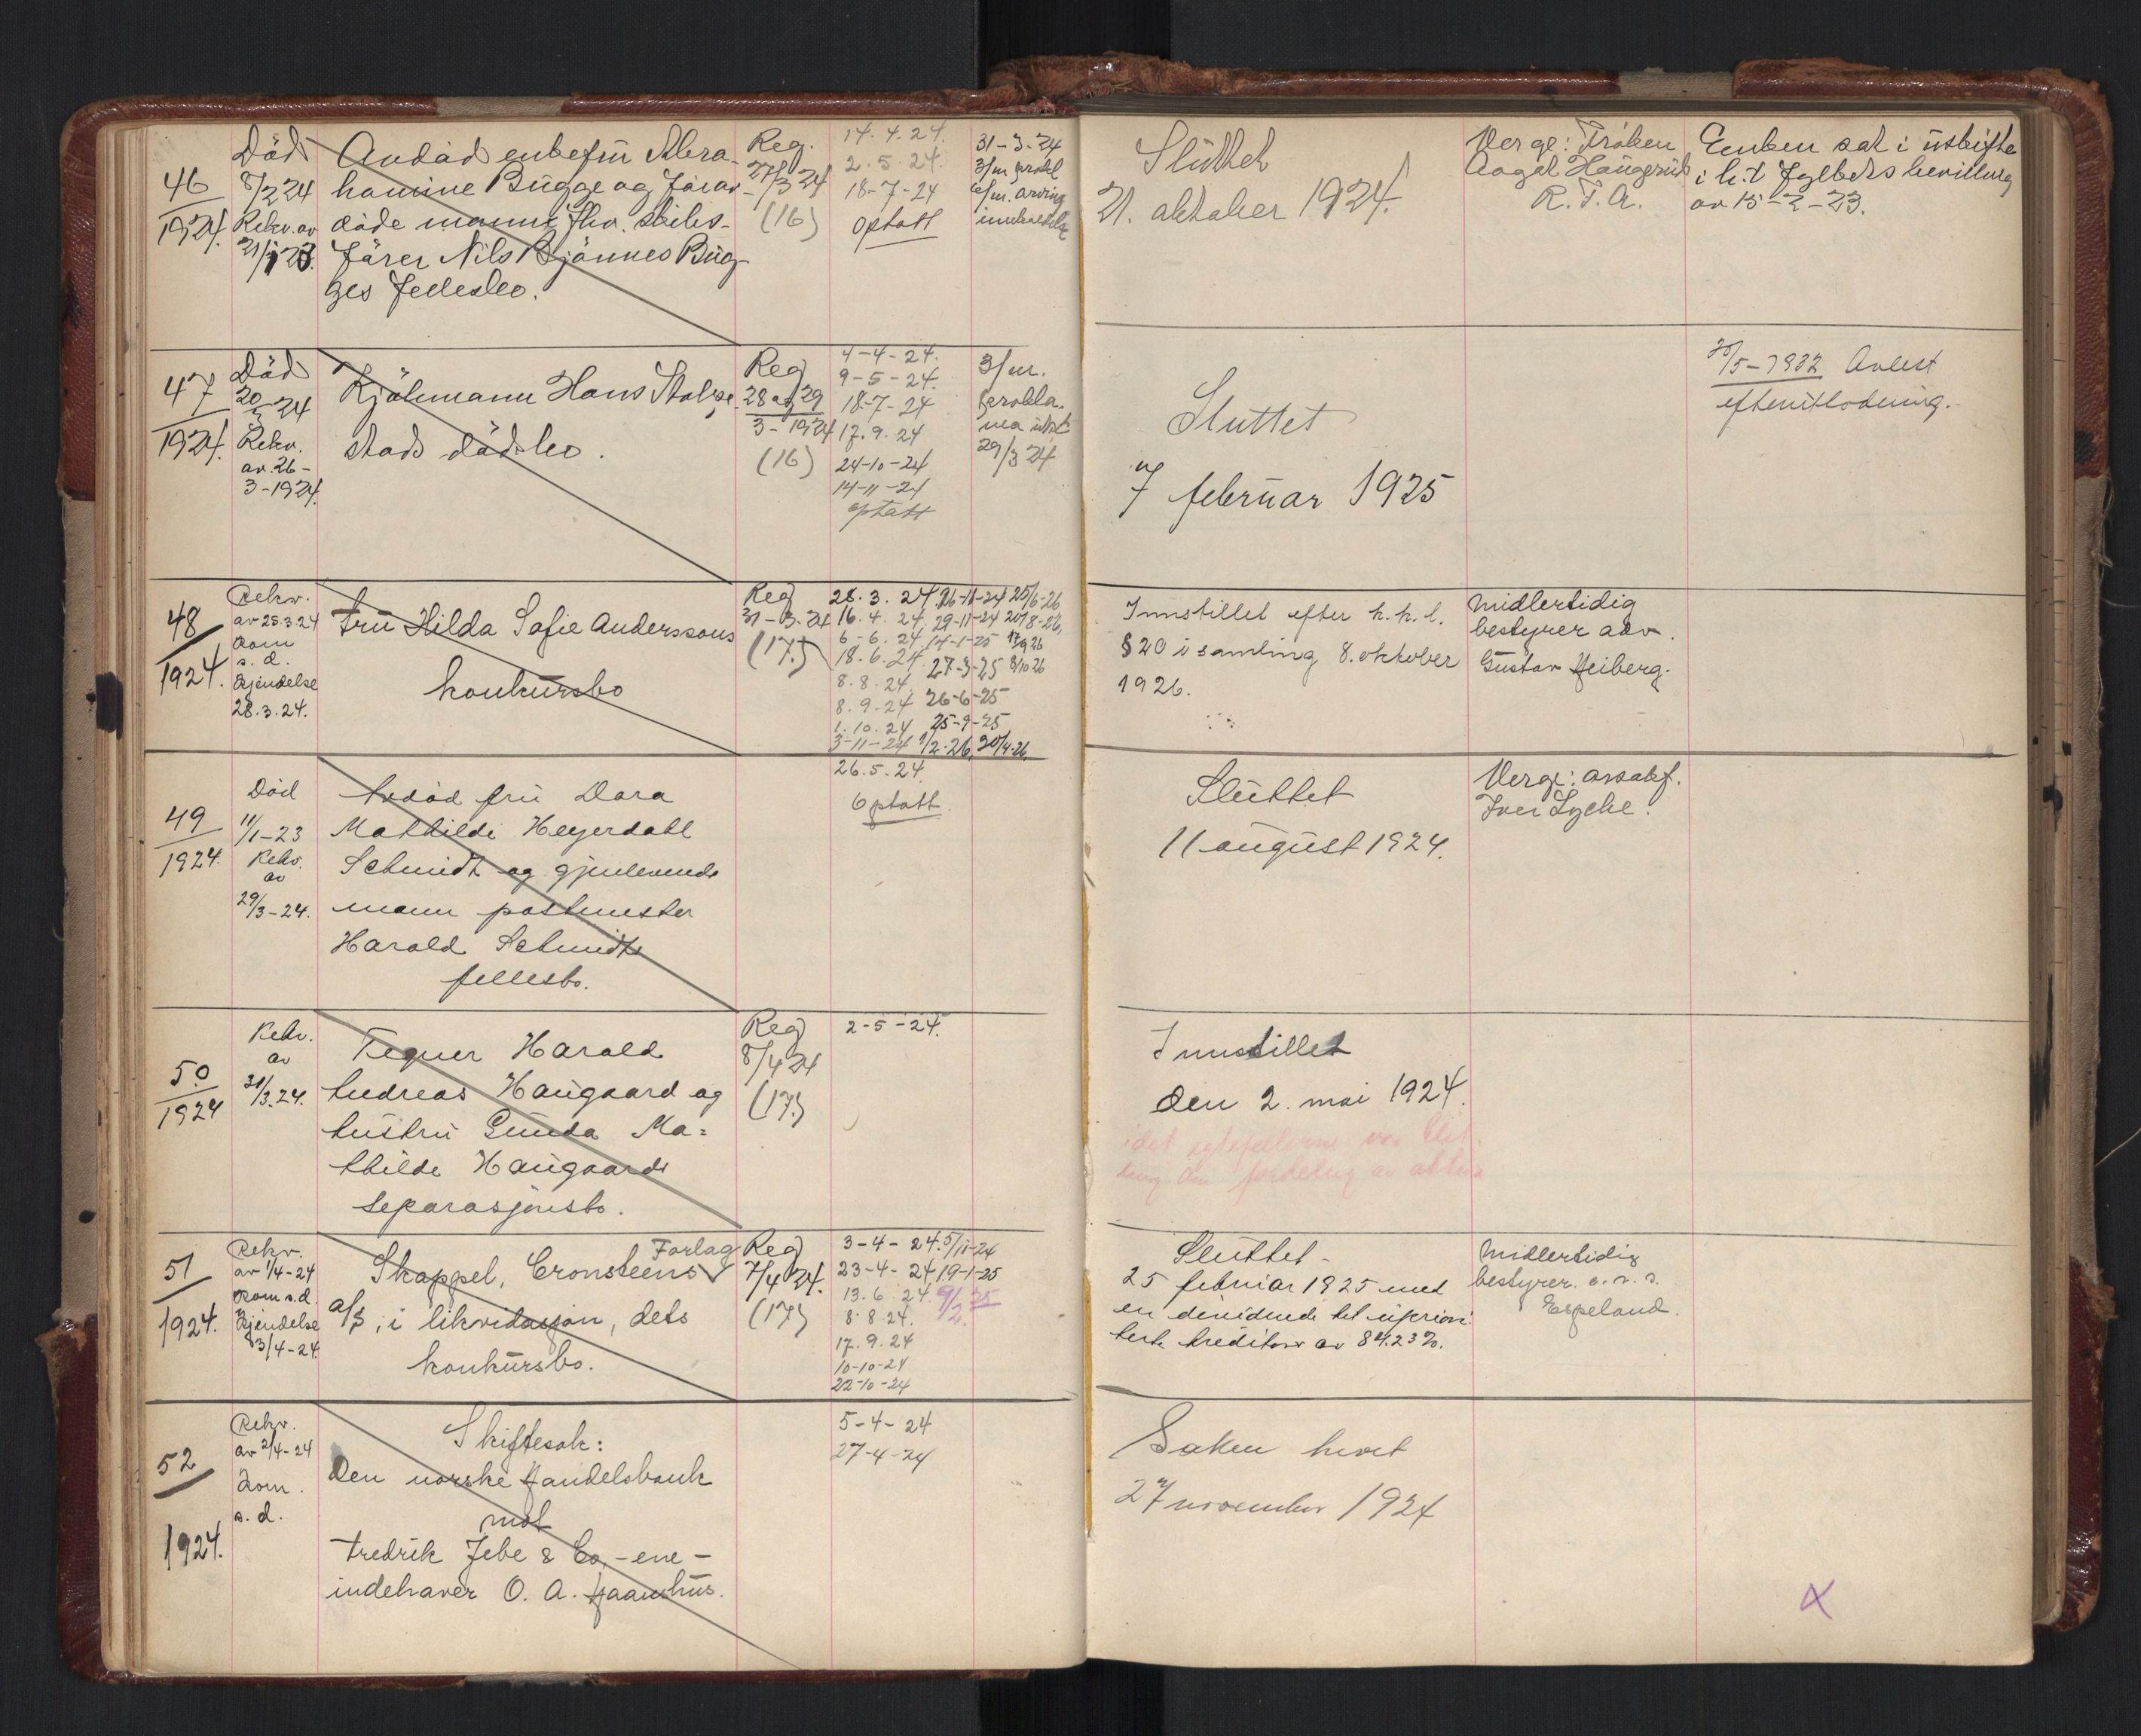 46
1924.
Död
8/2 24
Rekv. av
Avdöd enkefru Abra-
hamine Bugge og forav-
döde mann fhv. skibs-
förer Nils Bjönnes Bug-
ges fellesbo.
Reg.
27/3 24
(16)
14.4.24.
2.5.24.
18-7-24
optatt
31-3-24
3/m prokl
Sluttet
21. oktober 1924.
Verge: Fröken
R.T.A.
Enken sat i uskifte
i h. t fylkets bevilling
av 15-2-23.
47
1924.
Död
20/3 24
Rekv.
av 26-
3-1924.
Kjöbmann Hans Stolpe-
stads dödsbo.
Reg
28 og 29
3-1924
(16)
4-4-24.
9-5-24.
18-7-24
17.9.24
24-10-24
14-11-24
optatt
3/m.
prokla-
ma utst
29/3 24
Sluttet
7 februar 1925
Avlest
48
1924.
Rekv.
av 25.3.24
dom
s. d.
Kjendelse
28.3.24.
Fru Hilda Sofie Anderssons
konkursbo
Reg
31-3-24
(17.)
28.3.24.
16.4.24.
6-6.24.
18.6.24.
8.8.24.
8.9.24
1.10.24
3-11-24
29-11-24
14-1-25
27-3-25
26-6-25
25-9-25
1/2-26,
30/4-26.
Innstillet efter k. k. l.
§ 20 i samling 8. oktober
1926.
Midlertidig
bestyrer adv.
Gustav Heiberg.
49
1924.
Död
11/1-23
Rekv.
av
29/3-24.
Avdöd fru Dora
Mathilde Heyerdahl
Schmidt og gjenlevende
mann postmester
Harald Schmidts
fellesbo.
26.5.24.
Optatt.
Sluttet
11 august 1924.
Verge: o.r.sakf.
Iver Lyche.
50
1924
Rekv.
av
31/3.24.
Tegner Harald
Andreas Haugaard og
hustru Gunda Ma=
thilde Haugaards
separasjonsbo.
Reg
8/4 24
(17.)
2-5-24.
Innstillet
den 2. mai 1924.
51
1924.
Rekv.
av 1/4-24
Dom s.d.
Kjendelse
3/4-24.
Skappel, Cronsteens Forlag
A/S, i likvidasjon, dets
konkursbo.
Reg
7/4 24.
(17)
3-4-24.
23-4-24
13.6.24.
8.8.24.
17.9.24
10-10-24
22-10-24
5/11-24
19-1-25
9/2. 25
Sluttet-
25 februar 1925 med
en dividende til upriori-
terte kreditorer av 84.23%.
Midlertidig
bestyrer o.r.s.
Espeland.
52
1924.
Rekv.
av 2/4-24
Dom.
s. d.
Skiftesak:
Den norske Handelsbank
mot
Fredrik Jebe & Co, -ene-
indehaver O. A. Haamhus.
5-4-24
27-4-24
Saken hevet
27 november 1924
X